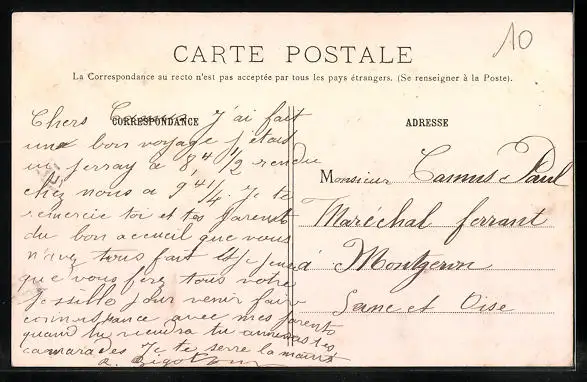 10
CARTE POSTALE
La Correspondance au recto n'est pas acceptée par tous les pays étrangers. (Se renseigner à la Poste).
CORRESPONDANCE
Chers J'ai fait
una bon voyage j'etais
a 8,H 1/2 rendu
chez nous a 9H 1/4. Je te
remercie toi et tes parents
du bon accueil que vous
m'avez tous fait
que vous fere tous votre
possible pour venir faire
connaissance avec mes parents
quand tu viendra tu amenras tes
camarades Je te serre la main
ADRESSE
Monsieur Camus Paul
Maréchal ferrant
a Montgeron
Seine et Oise